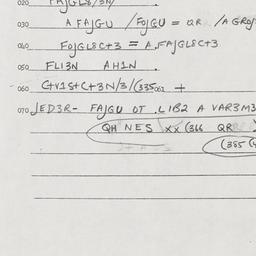 020 FAJGL8/3N/
030 A FAJGU /FOJGU = QR /A GROJ
040 FOJGL8C+3 = A.FAJGL8C+3
050 FLI3N AH1N .
060 C+V1S+C+3N/3/(335062 +
070 JED3R- FAJGU OT .LIB2 A VAR3M3
QH NES XX (366 QR
(385